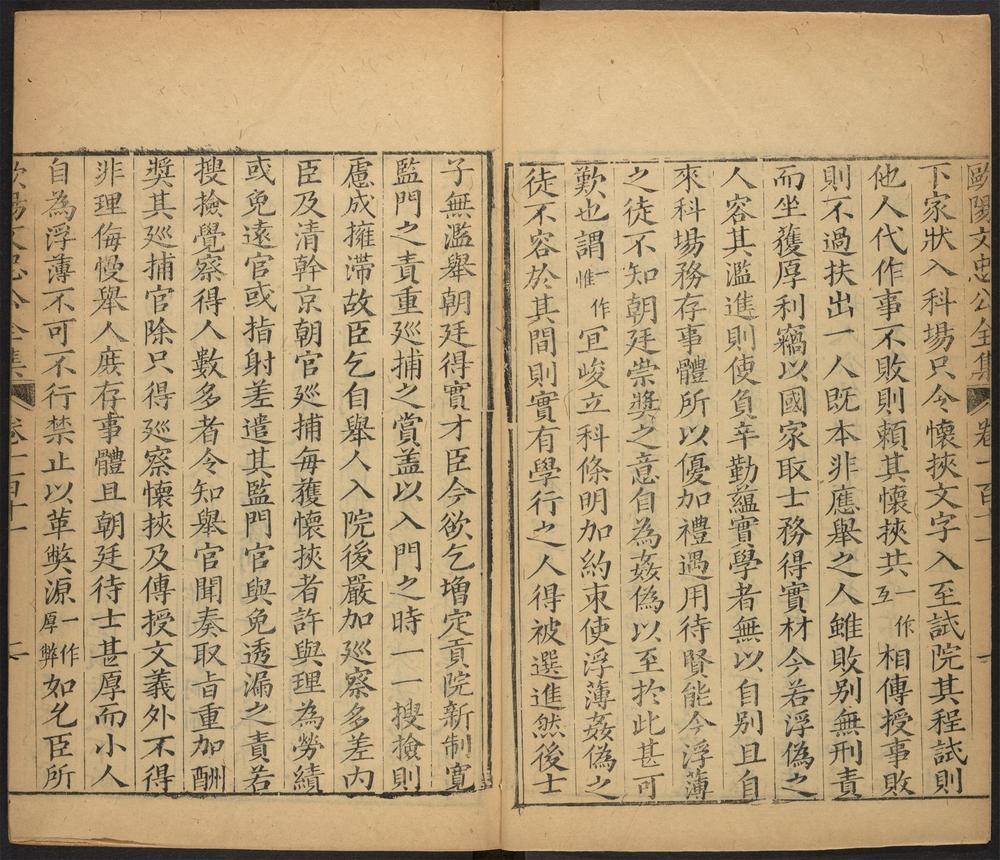 歐陽文忠公全集 卷一百十一
下家狀入科場只令懷挾文字入至試院其程試則
他人代作事不敗則賴其懷挾共一作互相傳授事敗
則不過扶出一人既本非應舉之人雖敗別無刑責
而坐獲厚利竊以國家取士務得實材今若浮偽之
人容其濫進則使負辛勤蘊實學者無以自別且自
來科場務存事體所以優加禮遇用待賢能今浮薄
之徒不知朝廷崇獎之意自為姦偽以至於此甚可
歎也謂一作惟宜峻立科條明加約束使浮薄姦偽之
徒不容於其間則實有學行之人得被選進然後士
子無濫舉朝廷得實才臣今欲乞增定貢院新制寬
監門之責重廵捕之賞盖以入門之時一一搜撿則
慮成擁滯故臣乞自舉人入院後嚴加廵察多差内
臣及清幹京朝官廵捕每獲懷挾者許與理為勞績
或免遠官或指射差遣其監門官與免透漏之責若
搜撿覺察得人數多者令知舉官聞奏取旨重加酬
獎其廵捕官除只得廵察懷挾及傳授文義外不得
非理侮慢舉人庻存事體且朝廷待士甚厚而小人
自為浮薄不可不行禁止以革弊源一作厚弊如允臣所